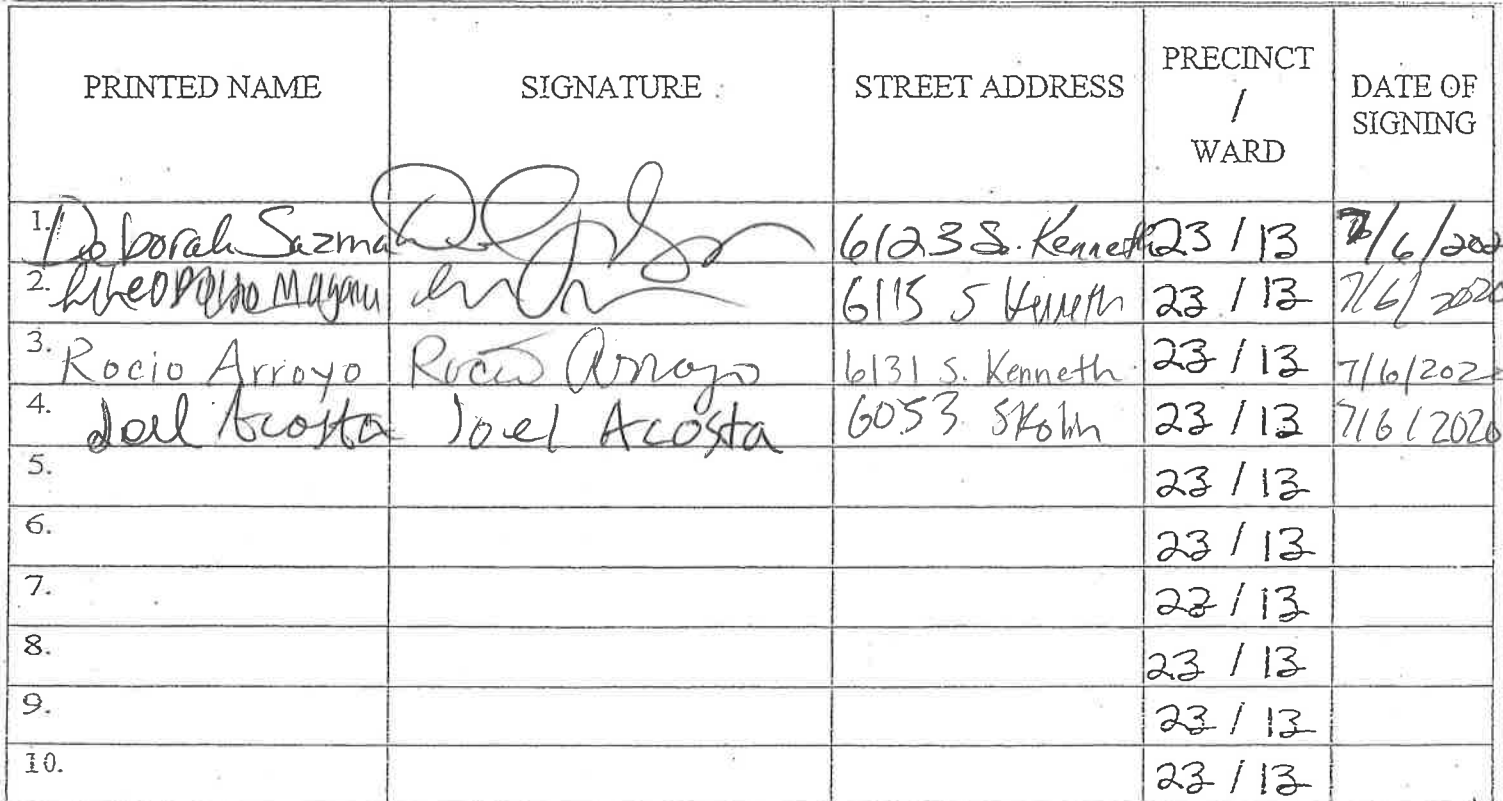 PRINTED NAME SIGNATURE STREET ADDRESS PRECINCT / WARD DATE OF SIGNING
1. Deborah Sazma 6123 S. Kenneth 23 / 13 7/6/202
2. Magana 6115 S Kenneth 23 / 13 7/6/2020
3. Rocio Arroyo Rocio Arroyo 6131 S. Kenneth 23 / 13 7/6/202
4. Joel Acosta Joel Acosta 6053 S Kolin 23 / 13 7/6/2020
5. 23 / 13
6. 23 / 13
7. 23 / 13
8. 23 / 13
9. 23 / 13
10. 23 / 13